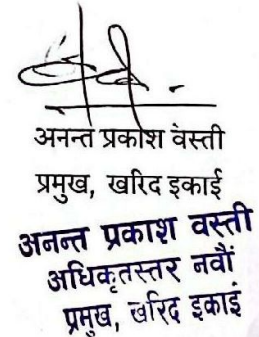 अनन्त प्रकाश वस्ती
प्रमुख, खरिद इकाई
अनन्त प्रकाश वस्ती
अधिकृतस्तर नवौं
प्रमुख, खरिद इकाई